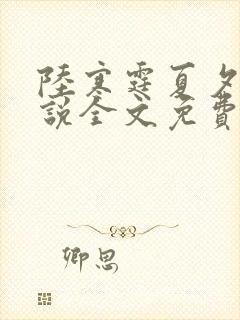 陸寒霆夏夕
說全文免費
卿思